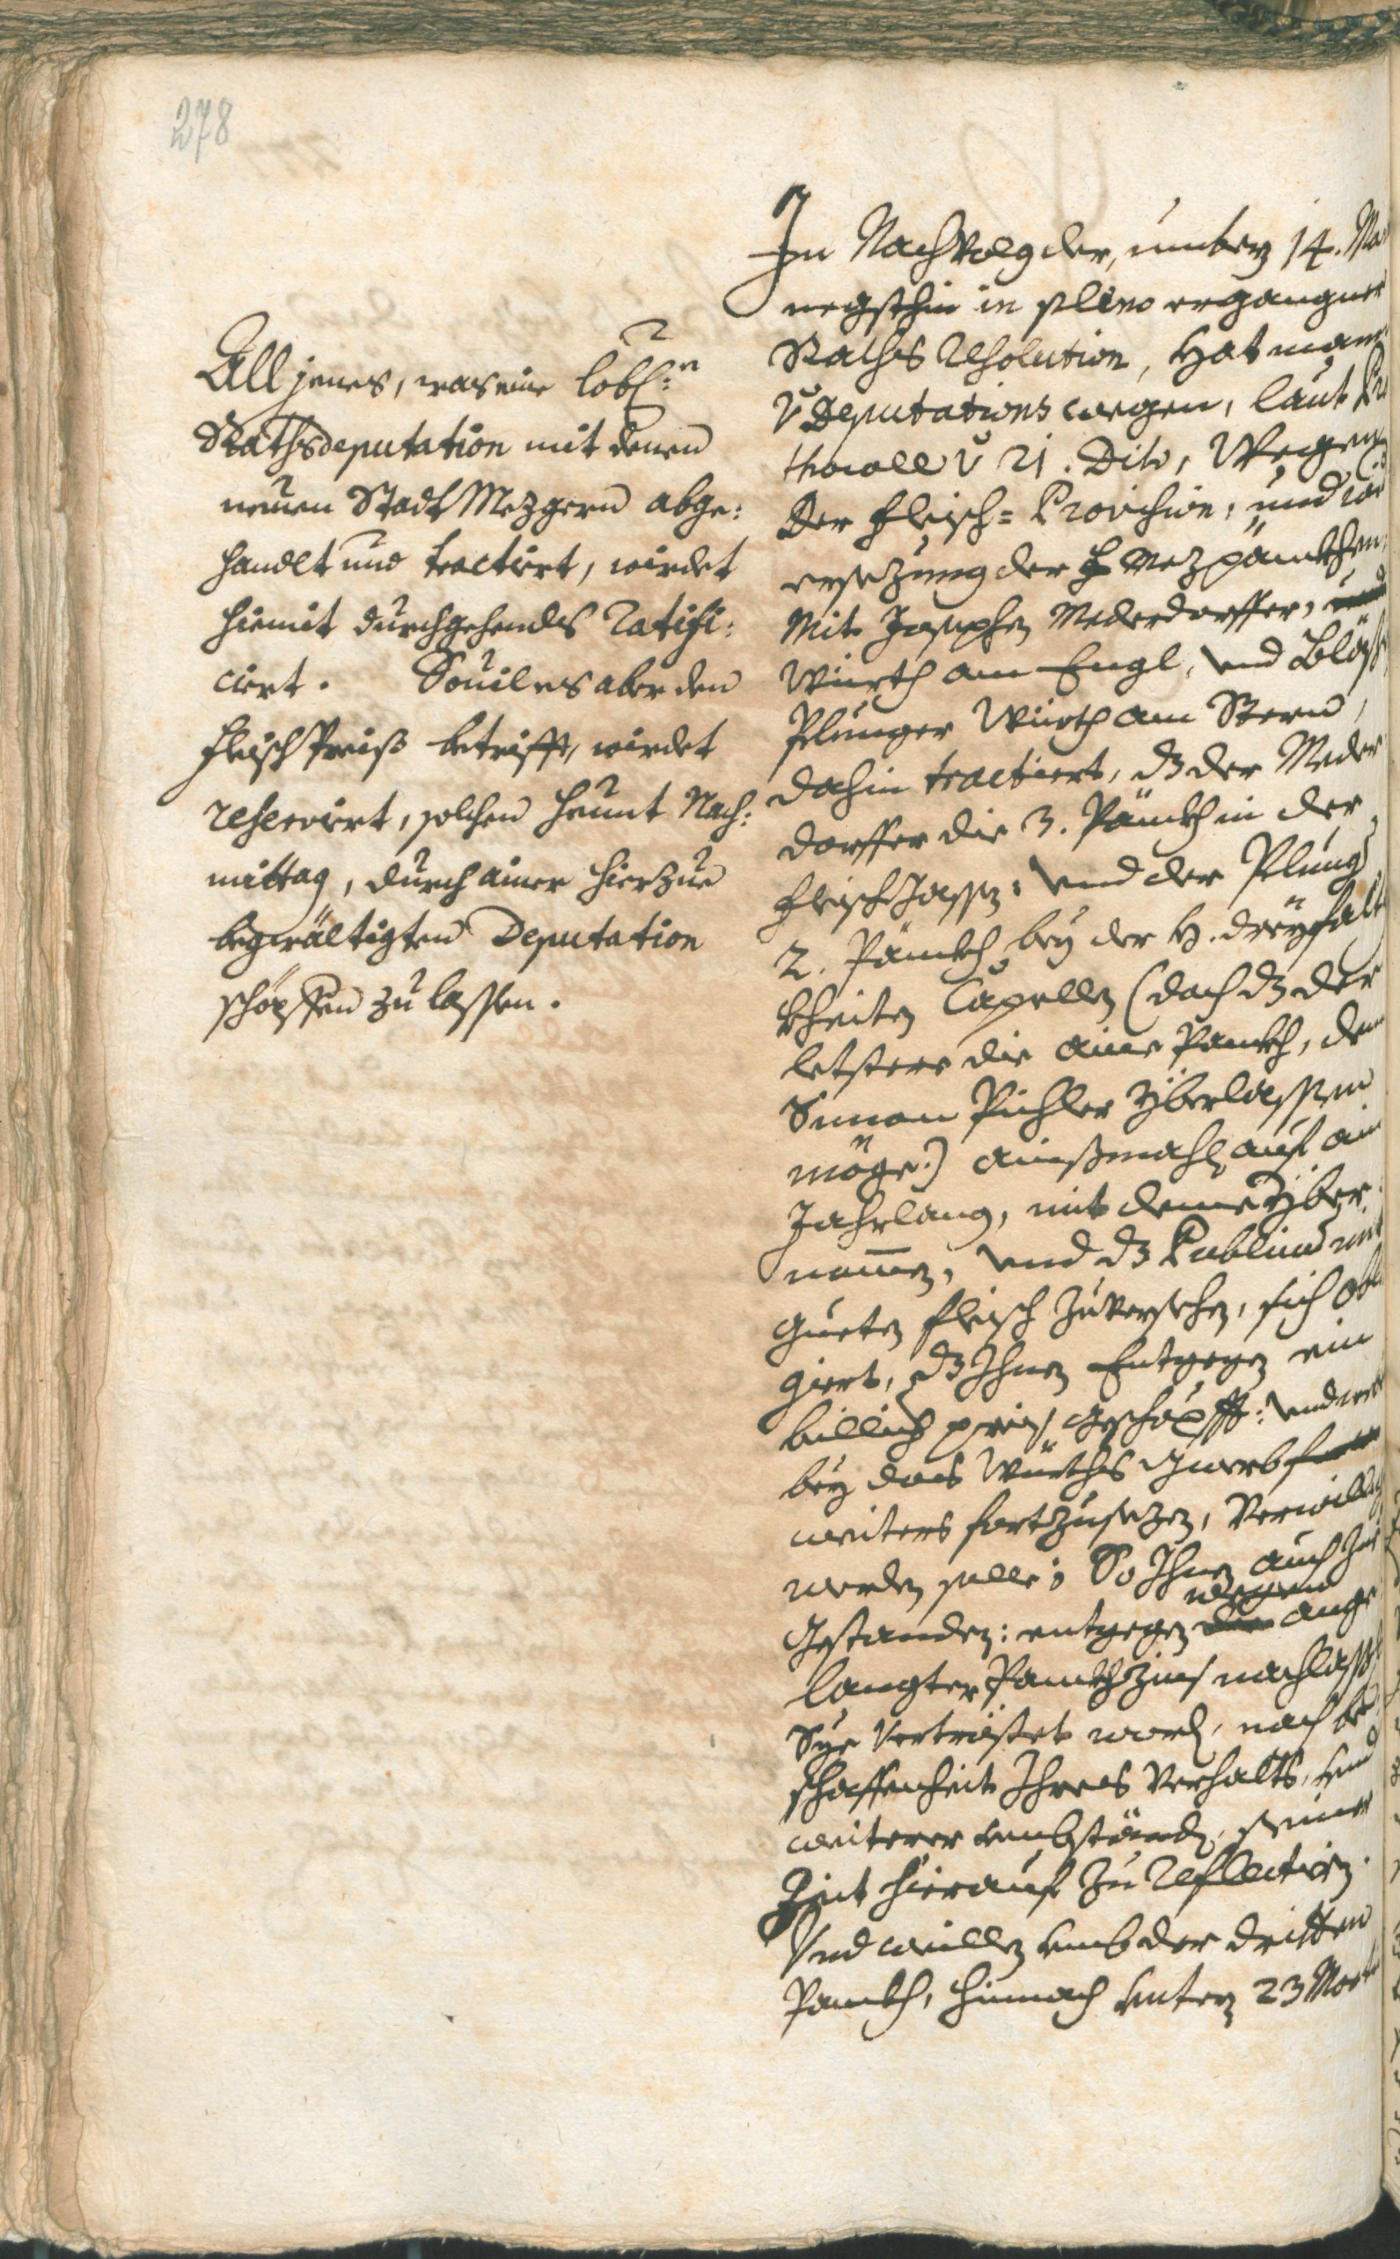 278
All jenes, was eine lobl:n
Rathsdeputation mit denen
neuen Stadt Mezgern abge:
handlet und tractiert, wirdet
hiemit durchgehendes ratifi:
ciert. Souil es aber den
fleisch Preiß betrifft, wirdet
reserviert, solchen heunt Nach:
mittag, durch ainer hierzue
begwältigten Deputation
schöpffen zu lassen.
In Nachvolg der, unterm 14.
negsthin in pleno ergangner
Raths resolution, hat man
v Deputations wegen, laut
v 21. Dito, Wegen
Der fleisch= Provision, und
ersezung der Mezpänckhen
Mit Josephen Mederdorffer,
Würth am Engl, und Bläsj
Plunger Würth am Stern,
dahin tractiert, dz der Meder
dorffer die 3. Pänckh in der
fleischgassen, und der Plung
2. Pänckh bey der H. dreyfalt
kheiten Capellen (doch dz der
letstere die aine Panckh, dem
Simon Pichler yberlassen
möge.) ainßmahls auf ain
Jahrlang, mit deme yber
nomen, und dz Publicum mit
gueten fleisch zuversehen, sich obli
giert, dz Ihnen Entgegen ein
billicher preis geschöpfft: und
bey das Würths gwerb
weiters fortzusezen, Verwilliget
werden solle; So Ihnen auch zue
gestanden: entgegen wegen ange
langter Panckhzins nachlass
Sye vertröstet word, nach be
schaffenheit Ihres verhalts, und
weiterer umbständ, seiner
Zeit hierauf zu reflectiern.
Und weillen umb der dritten
Panckh, hinnach untern 23